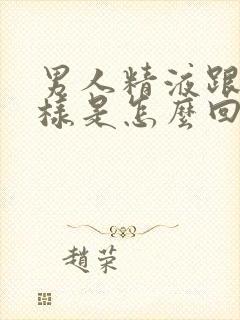 男人精液跟
樣是怎麼回
趙荣